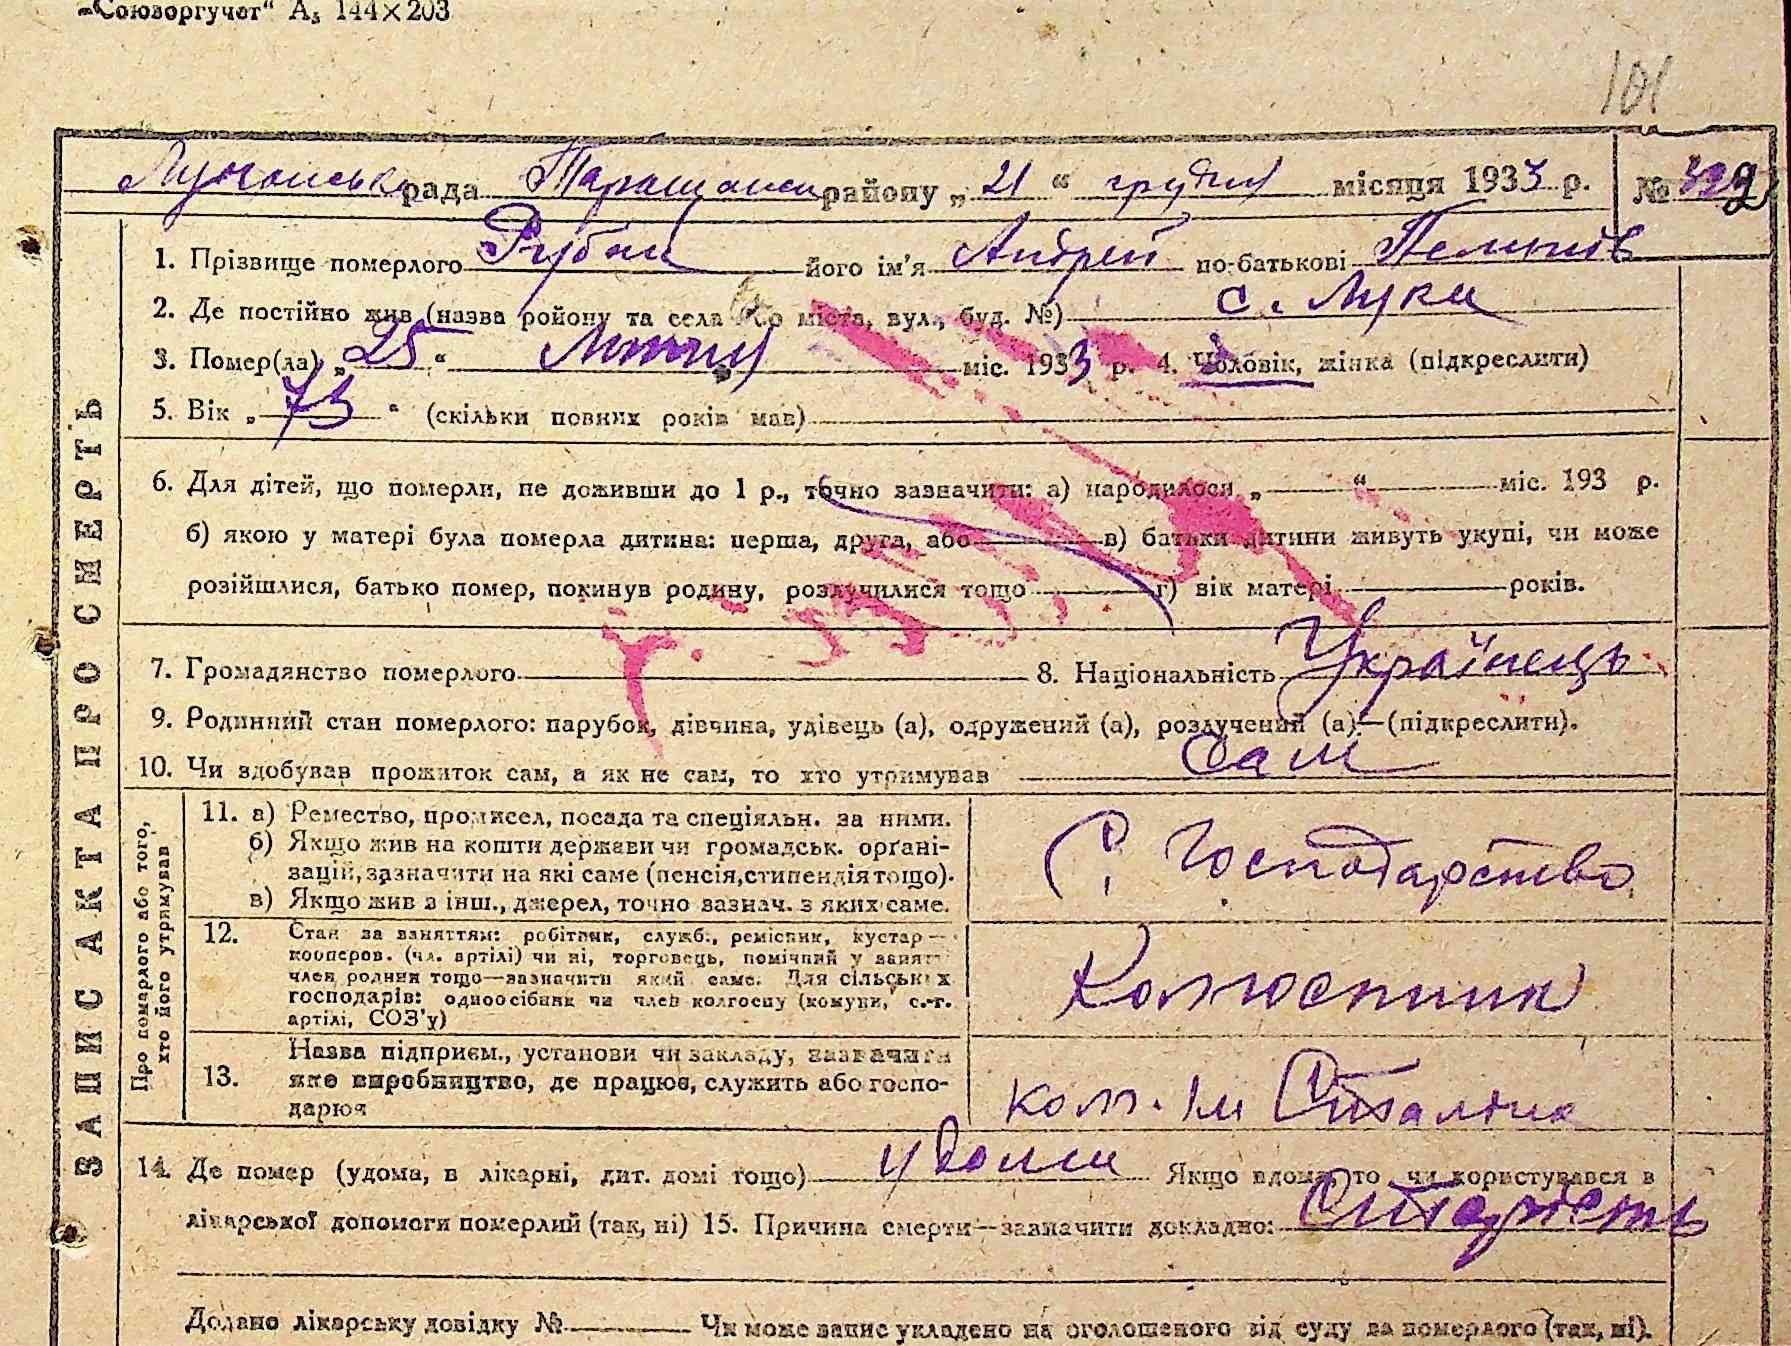 „Союзоргучет“ А₅ 144×203
101
рада Таращанськ району „ 21 “ грудня місяця 1933 р. №
1. Прізвище померлого Рубан його ім'я Андрей по-батькові
2. Де постійно жив (назва ройону та села або міста, вул., буд. №) с. Луки
3. Помер(ла) „ 25 “ Лютня міс. 1933 р. 4. Чоловік, жінка (підкреслити)
5. Вік „ 73 “ (скільки повних років мав)
6. Для дітей, що померли, не доживши до 1 р., точно зазначити: а) народилося „ “ міс. 193 р.
б) якою у матері була померла дитина: перша, друга, або в) батьки дитини живуть укупі, чи може
розійшлися, батько помер, покинув родину, розлучилися тощо г) вік матері років.
7. Громадянство померлого 8. Національність Українець
9. Родинний стан померлого: парубок, дівчина, удівець (а), одружений (а), розлучений (а)—(підкреслити).
10. Чи здобував прожиток сам, а як не сам, то хто утримував сам
ЗАПИС АКТА ПРО СМЕРТЬ
Про померлого або того, хто його утримував
11. а) Ремество, промисел, посада та спеціяльн. за ними.
б) Якщо жив на кошти держави чи громадськ. орґані-
зацій, зазначити на які саме (пенсія, стипендія тощо).
в) Якщо жив з інш., джерел, точно зазнач. з яких саме.
С. Господарство
12. Стан за заняттям: робітник, служб., ремісник, кустар—
кооперов. (чл. артілі) чи ні, торговець, помічний у занятт
член родини тощо—зазначити який саме. Для сільських
господарів: одноосібник чи член колгоспу (комуни, с.-г.
артілі, СОЗ'у)
Колгоспник
13. Назва підприєм., установи чи закладу, зазначити
яке виробництво, де працює, служить або госпо-
дарює
кол. Ім Сталіна
14. Де помер (удома, в лікарні, дит. домі тощо) удома Якщо вдома, то чи користувався з
лікарської допомоги померлий (так, ні) 15. Причина смерти—зазначити докладно: Старість
Додано лікарську довідку № Чи може запис укладено на оголошеного від суду за померлого (так, ні).